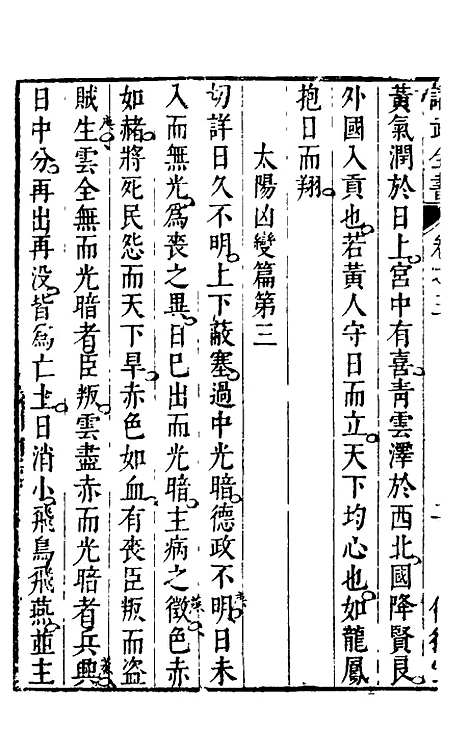 黃氣潤於日上宮中有喜青雲澤於西北國降賢良
外國入貢也若黃人守日而立天下均心也如龍鳳
抱日而翔
太陽凶變篇第三
切詳日久不明上下蔽塞過中光暗德政不明日未
入而無光為喪之異日巳出而光暗主病之徵色赤
如赭將死民怨而天下旱赤色如血有喪臣叛而盜
賊生雲全無而光暗者臣叛雲盡赤而光暗者兵興
日中分再出再没皆為亡土日消小飛鳥飛燕並主